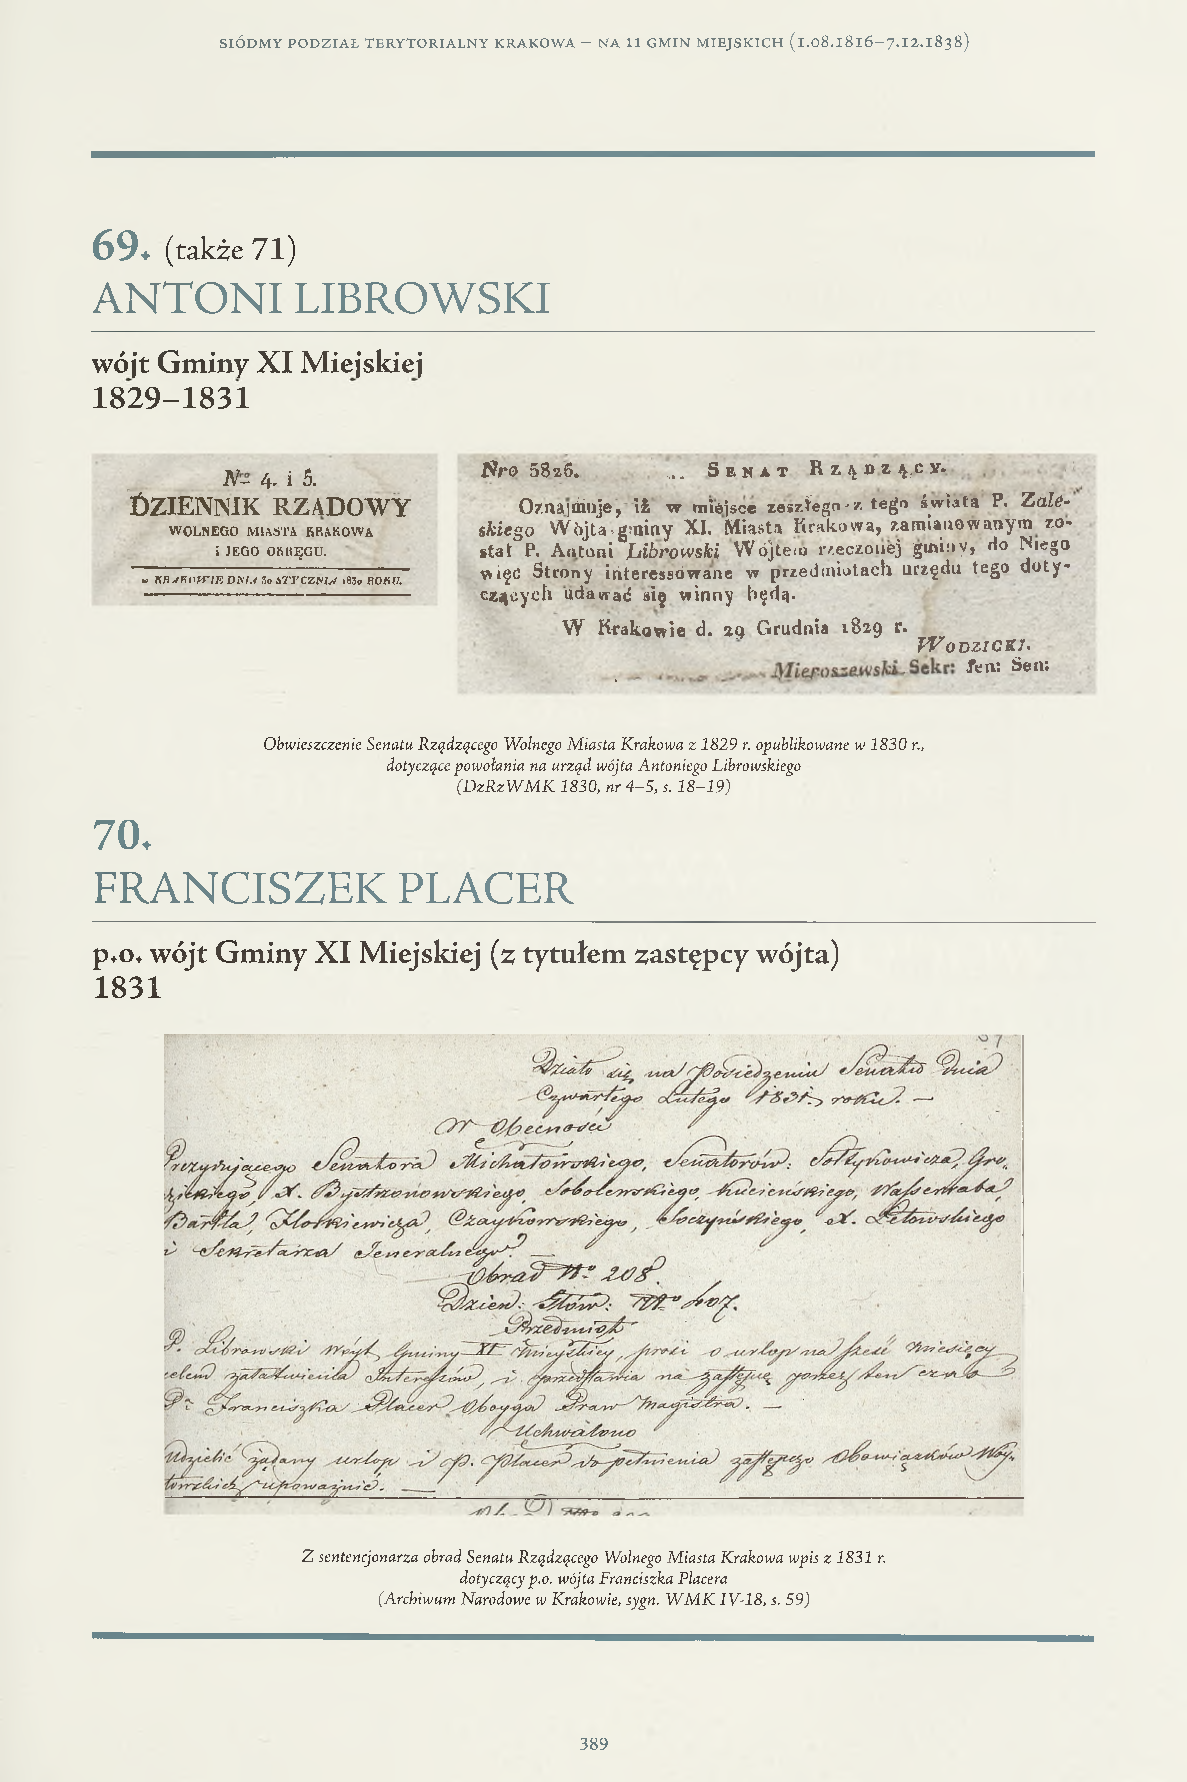 SIÓDMY PODZIAŁ TERYTORIALNY KRAKOWA – NA 11 GMIN MIEJSKICH (1.08.1816–7.12.1838)
69. (także 71)
ANTONI LIBROWSKI
wójt Gminy XI Miejskiej
1829–1831
Nro 4. i 5.
DZIENNIK RZĄDOWY
WOLNEGO MIASTA KRAKOWA
i JEGO OKRĘGU.
w KRAKOWIE DNIA 30 STYCZNIA 1830 ROKU.
Nro 5826. SENAT RZĄDZĄCY.
Oznajmuje, iż w miejsce zeszłego z tego świata P. Zale-
skiego Wójta gminy XI. Miasta Krakowa, zamianowanym zo-
stał P. Antoni Librowski Wójtem rzeczonej gminy, do Niego
więc Strony interessowane w przedmiotach urzędu tego doty-
czących udawać się winny będą.
W Krakowie d. 29 Grudnia 1829 r.
WODZICKI.
Mieroszewski Sekr: Jen: Sen:
Obwieszczenie Senatu Rządzącego Wolnego Miasta Krakowa z 1829 r. opublikowane w 1830 r.,
dotyczące powołania na urząd wójta Antoniego Librowskiego
(DzRzWMK 1830, nr 4–5, s. 18–19)
70.
FRANCISZEK PLACER
p.o. wójt Gminy XI Miejskiej (z tytułem zastępcy wójta)
1831
Działo się na Posiedzeniu Senatu Dnia
Czwartego Lutego 1831. roku. —
W Obecności
Prezydującego Senatora Michałowskiego, Senatorów: Sołtykowicza, Gro-
dzickiego, X. Bystrzonowskiego, Sobolewskiego, Kucieńskiego, Wassenraba,
Bartla, Florkiewicza, Czaykowskiego, Soczyńskiego, X. Łętowskiego
i Sekretarza Jeneralnego. —
Obrad No 208.
Dzien: Głów: No 407.
Przedmiot
P. Librowski Wóyt Gminy XI Mieyskiey, prosi o urlop na sześć Miesięcy
celem załatwienia Interesów, i przedstawia na zastępcę przez ten czas
P. Franciszka Placer Oboyga Praw Magistra. —
Uchwalono
Udzielić żądany urlop i P. Placer do pełnienia zastępczo Obowiązków Wóy-
towskich upoważnić. —
Z sentencjonarza obrad Senatu Rządzącego Wolnego Miasta Krakowa wpis z 1831 r.
dotyczący p.o. wójta Franciszka Placera
(Archiwum Narodowe w Krakowie, sygn. WMK IV-18, s. 59)
389